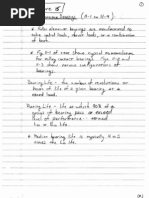 Lecture 15
bearings (11-1 to 11-4)
* Roller element bearings are manufactured to
take radial loads, thrust loads, or a combination
of both.
* Fig 11-1 of text shows typical nomenclature
for rolling contact bearings. Figs 11-2 and
11-3 shows various configurations of
bearings.
Bearing Life - the number of revolutions or
hours of life of a given bearing at a
rated load.
Rating Life - life at which 90% of a
group of bearing pass or exceed
of performance - termed
L10 or B10 life.
* Median bearing life is typically 4-5
times the L10 life.